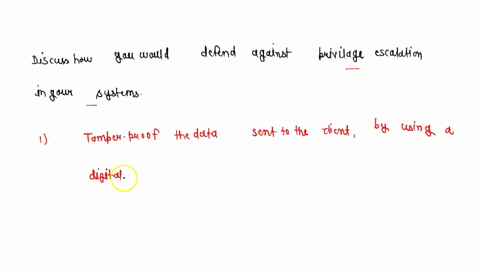 Discuss how you would defend against privilage escalation
in your systems.
1) Tamper-proof the data sent to the client, by using a
digital.